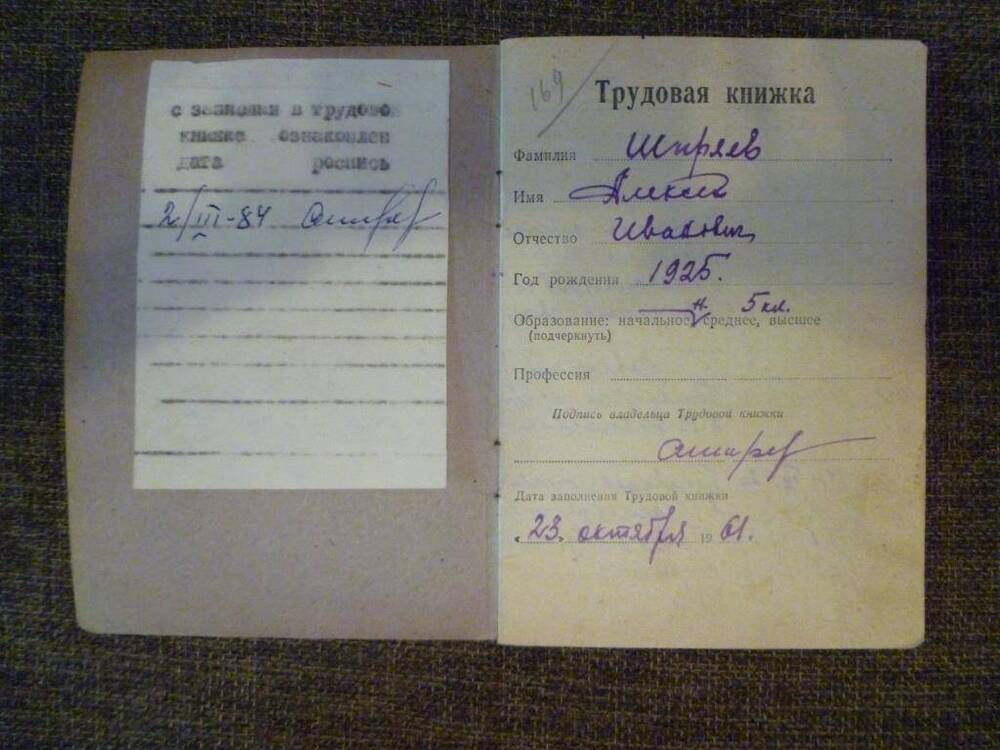 с записями в трудово
книжке ознакомлен
дата роспись
2/III-84
169
Трудовая книжка
Фамилия Ширяев
Имя Алексей
Отчество Иванович
Год рождения 1925.
н. 5 кл.
Образование: начальное, среднее, высшее
(подчеркнуть)
Профессия
Подпись владельца Трудовой книжки
Дата заполнения Трудовой книжки
„23„ октября 1961.